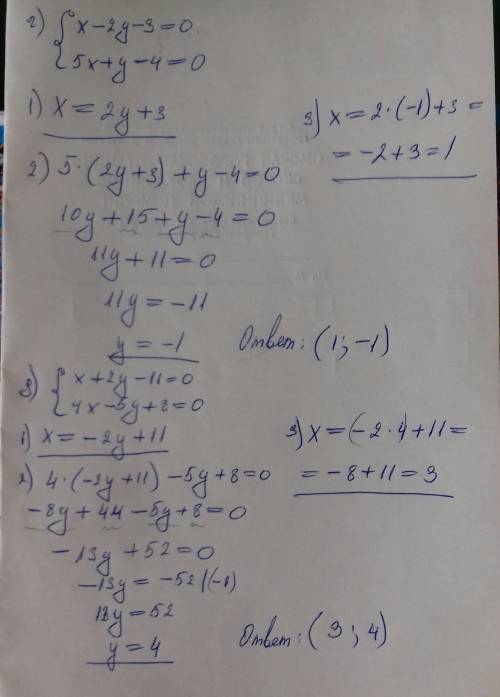 2) { x-2y-3=0
5x+y-4=0
1) x = 2y+3
2) 5·(2y+3)+y-4=0
10y+15+y-4=0
11y+11=0
11y = -11
y = -1
3) x = 2·(-1)+3 =
= -2+3=1
Ответ: (1; -1)
3) { x+2y-11=0
4x-5y+8=0
1) x = -2y+11
2) 4·(-2y+11)-5y+8=0
-8y+44-5y+8=0
-13y+52=0
-13y = -52 |(-1)
13y=52
y = 4
3) x = (-2·4+11=
= -8+11=3
Ответ: (3; 4)